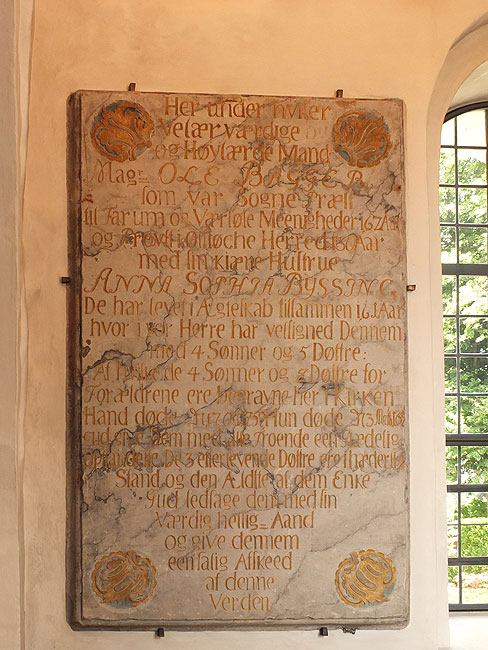 Her under hviler
Velærværdige
og Høylærde Mand
Mag= OLE BAGGER
som var Sogne Præst
til Farum og Værløse Meenigheder
og Provst i Ølstøche Herred Aar
med sin Kiære Hustrue
ANNA SOPHIA BYSSING
De har levet i Ægteskab tilsammen Aar
hvor i vor Herre har velsigned Dennem
med 4 Sønner og 5 Døttre:
Af hvilke de 4 Sønner og 2 Døttre for
Forældrene ere begravne her i Kirken
Hand døde Hun døde
gud give Dem med alle Troende een Sædelig
opstandelse De 3 efterlevende Døttre ere i hæderlig
Stand, og den Ældste af dem Enke
Gud ledsage dem med sin
Værdig hellig= Aand
og give dennem
een salig Afskeed
af denne
Verden